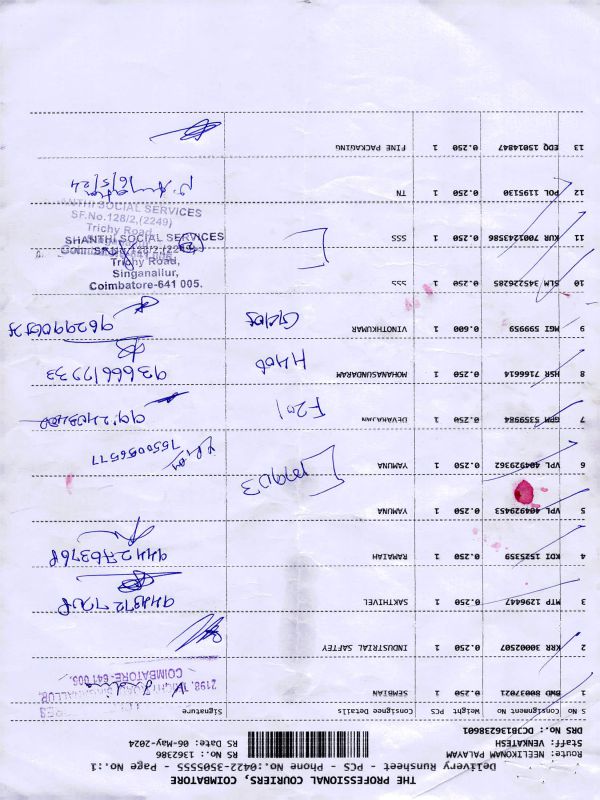 THE PROFESSIONAL COURIERS, COIMBATORE
Delivery Runsheet - PCS - Phone No.:0422-3505555 - Page No.:1
Route: NEELIKONAM PALAYAM
Staff: VENKATESH
DRS No.: DCJB136238601
RS No: 1362386
RS Date: 06-May-2024
S No Consignment No Weight PCS Consignee Details Signature
1 BWD 80037021 0.250 1 SEMBIAN
COIMBATORE- 641 005.
2 KRR 30002507 0.250 1 INDUSTRIAL SAFTEY
3 MTP 1296447 0.250 1 SAKTHIVEL
4 KDI 1525359 0.250 1 RAMAIAH 9442763768
5 VPL 404929453 0.250 1 YAMUNA
6 VPL 404929362 0.250 1 YAMUNA 7550056577
7 GPM 5359984 0.250 1 DEVARAJAN F201
8 HSR 7166614 0.250 1 MOHANASUNDARAM H406 9366612233
9 MGI 599959 0.600 1 VINOTHKUMAR
10 SLM 345226285 0.250 1 SSS
11 KUR 7001243586 0.250 1 SSS
SHANTHI SOCIAL SERVICES
Trichy Road,
Singanallur,
Coimbatore-641 005.
SHANTHI SOCIAL SERVICES
SF.No.128/2,(2249)
Trichy Road
12 POL 1195130 0.250 1 TN 16/5/24
13 EDQ 15014847 0.250 1 FINE PACKAGING